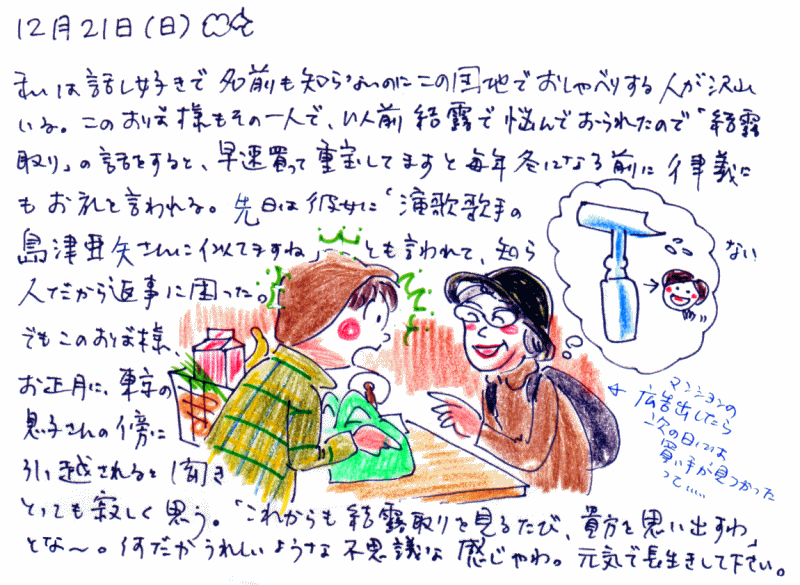 12月21日(日)
私は話し好きで名前も知らないのにこの団地でおしゃべりする人が沢山
いる。このおば様もその一人で、以前結露で悩んでおられたので「結露
取り」の話をすると、早速買って重宝してますと毎年冬になる前に律義に
もお礼を言われる。先日は彼女に「演歌歌手の
島津亜矢さんに似てますね」とも言われて、知らない
人だから返事に困った。
でもこのおば様、
お正月に、東京の
息子さんの傍に
引越されると聞き
とっても寂しく思う。「これからも結露取りを見るたび、貴方を思い出すわ」
とな〜。何だかうれしいような不思議な感じやわ。元気で長生きして下さい。
マンションの
広告出したら
次の日には
買い手が見つかった
って……